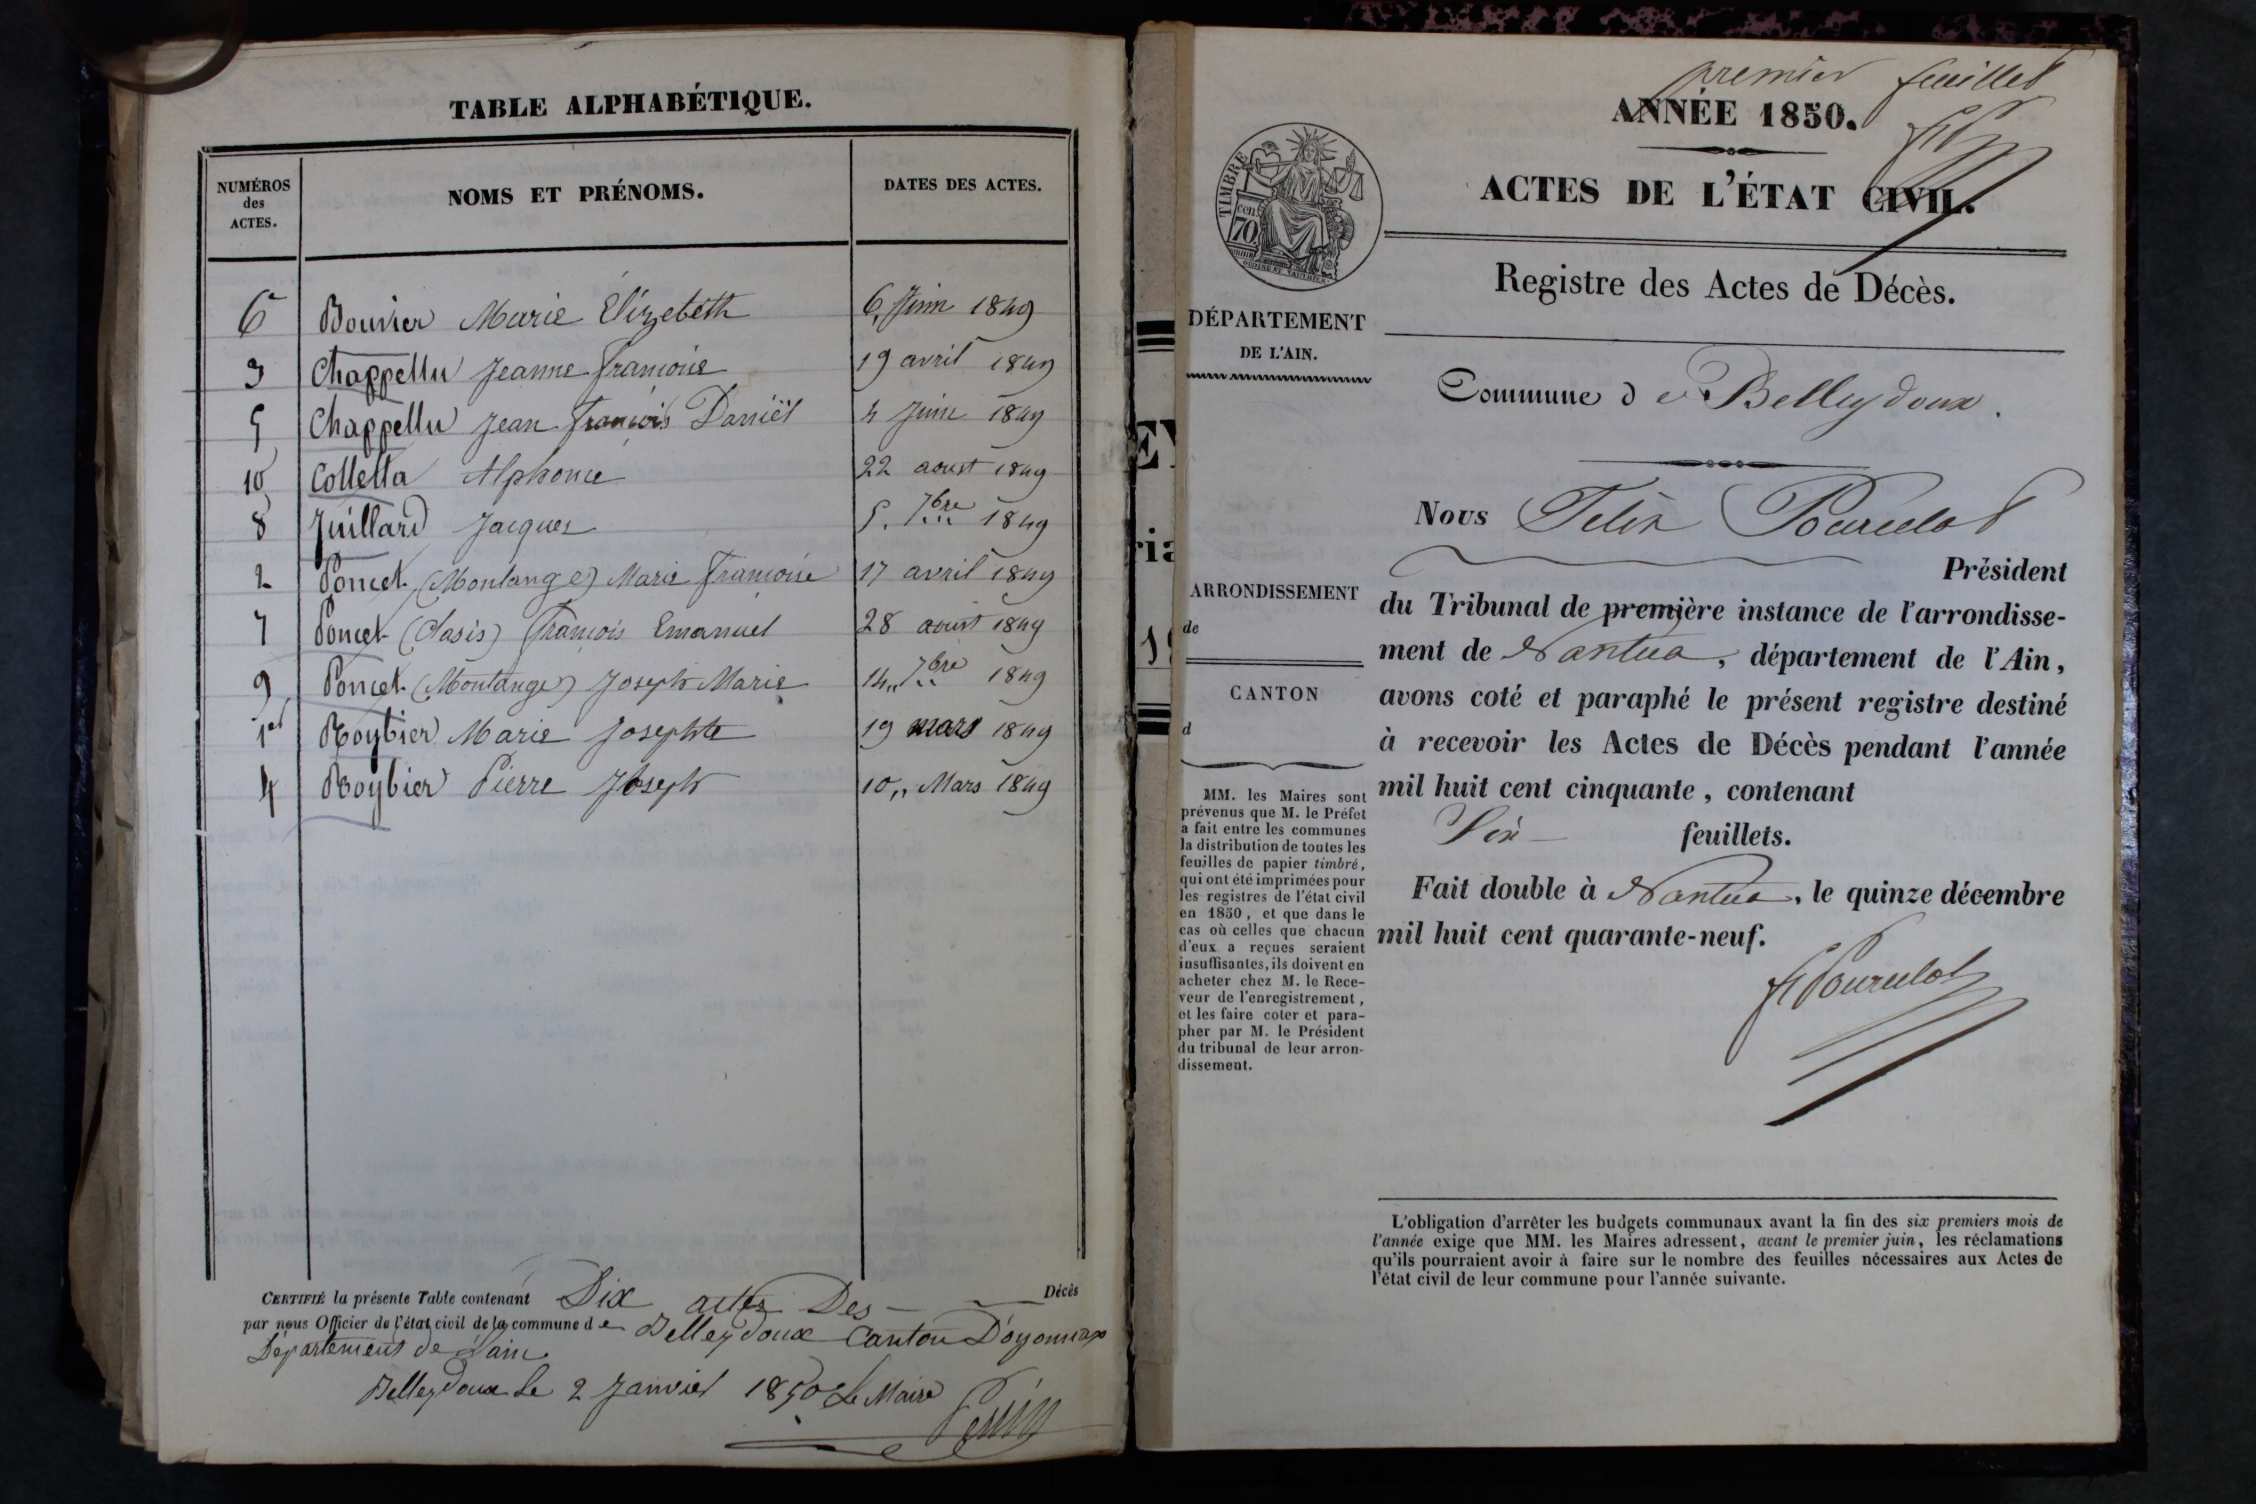 TABLE ALPHABÉTIQUE.
NUMÉROS des ACTES. NOMS ET PRÉNOMS. DATES DES ACTES.
6 Bouvier Marie Elizebeth 6, Juin 1849
3 Chappellu Jeanne françoise 19 avril 1849
5 Chappellu Jean françois Daniël 4 Juin 1849
10 Colletta Alphonce 22 aoust 1849
8 Juillard Jacques 5. 7bre 1849
2 Poncet (Montange) Marie françoise 17 avril 1849
7 Poncet (Clasis) françois Emanuel 28 aoust 1849
9 Poncet (Montange) Joseph Marie 14,, 7bre 1849
1er Roybier Marie Josephte 19 mars 1849
4 Roybier Pierre Joseph 10,, Mars 1849
CERTIFIÉ la présente Table contenant Dix actes Des Décès
par nous Officier de l'état civil de la commune de Belleydoux Canton D'oyonnax
Département de l'ain
Belleydoux le 2 Janvier 1850 Le Maire
premier feuillet
ANNÉE 1850.
ACTES DE L'ÉTAT CIVIL.
TIMBRE
cen.
70
Registre des Actes de Décès.
DÉPARTEMENT
DE L'AIN.
Commune de Belleydoux.
Nous Félix Pourcelot
Président
du Tribunal de première instance de l'arrondisse-
ment de Nantua, département de l'Ain,
avons coté et paraphé le présent registre destiné
à recevoir les Actes de Décès pendant l'année
mil huit cent cinquante, contenant
feuillets.
Fait double à Nantua, le quinze décembre
mil huit cent quarante-neuf.
F Pourcelot
ARRONDISSEMENT
de
CANTON
d
MM. les Maires sont
prévenus que M. le Préfet
a fait entre les communes
la distribution de toutes les
feuilles de papier timbré,
qui ont été imprimées pour
les registres de l'état civil
en 1850, et que dans le
cas où celles que chacun
d'eux a reçues seraient
insuffisantes, ils doivent en
acheter chez M. le Rece-
veur de l'enregistrement,
et les faire coter et para-
pher par M. le Président
du tribunal de leur arron-
dissement.
L'obligation d'arrêter les budgets communaux avant la fin des six premiers mois de
l'année exige que MM. les Maires adressent, avant le premier juin, les réclamations
qu'ils pourraient avoir à faire sur le nombre des feuilles nécessaires aux Actes de
l'état civil de leur commune pour l'année suivante.